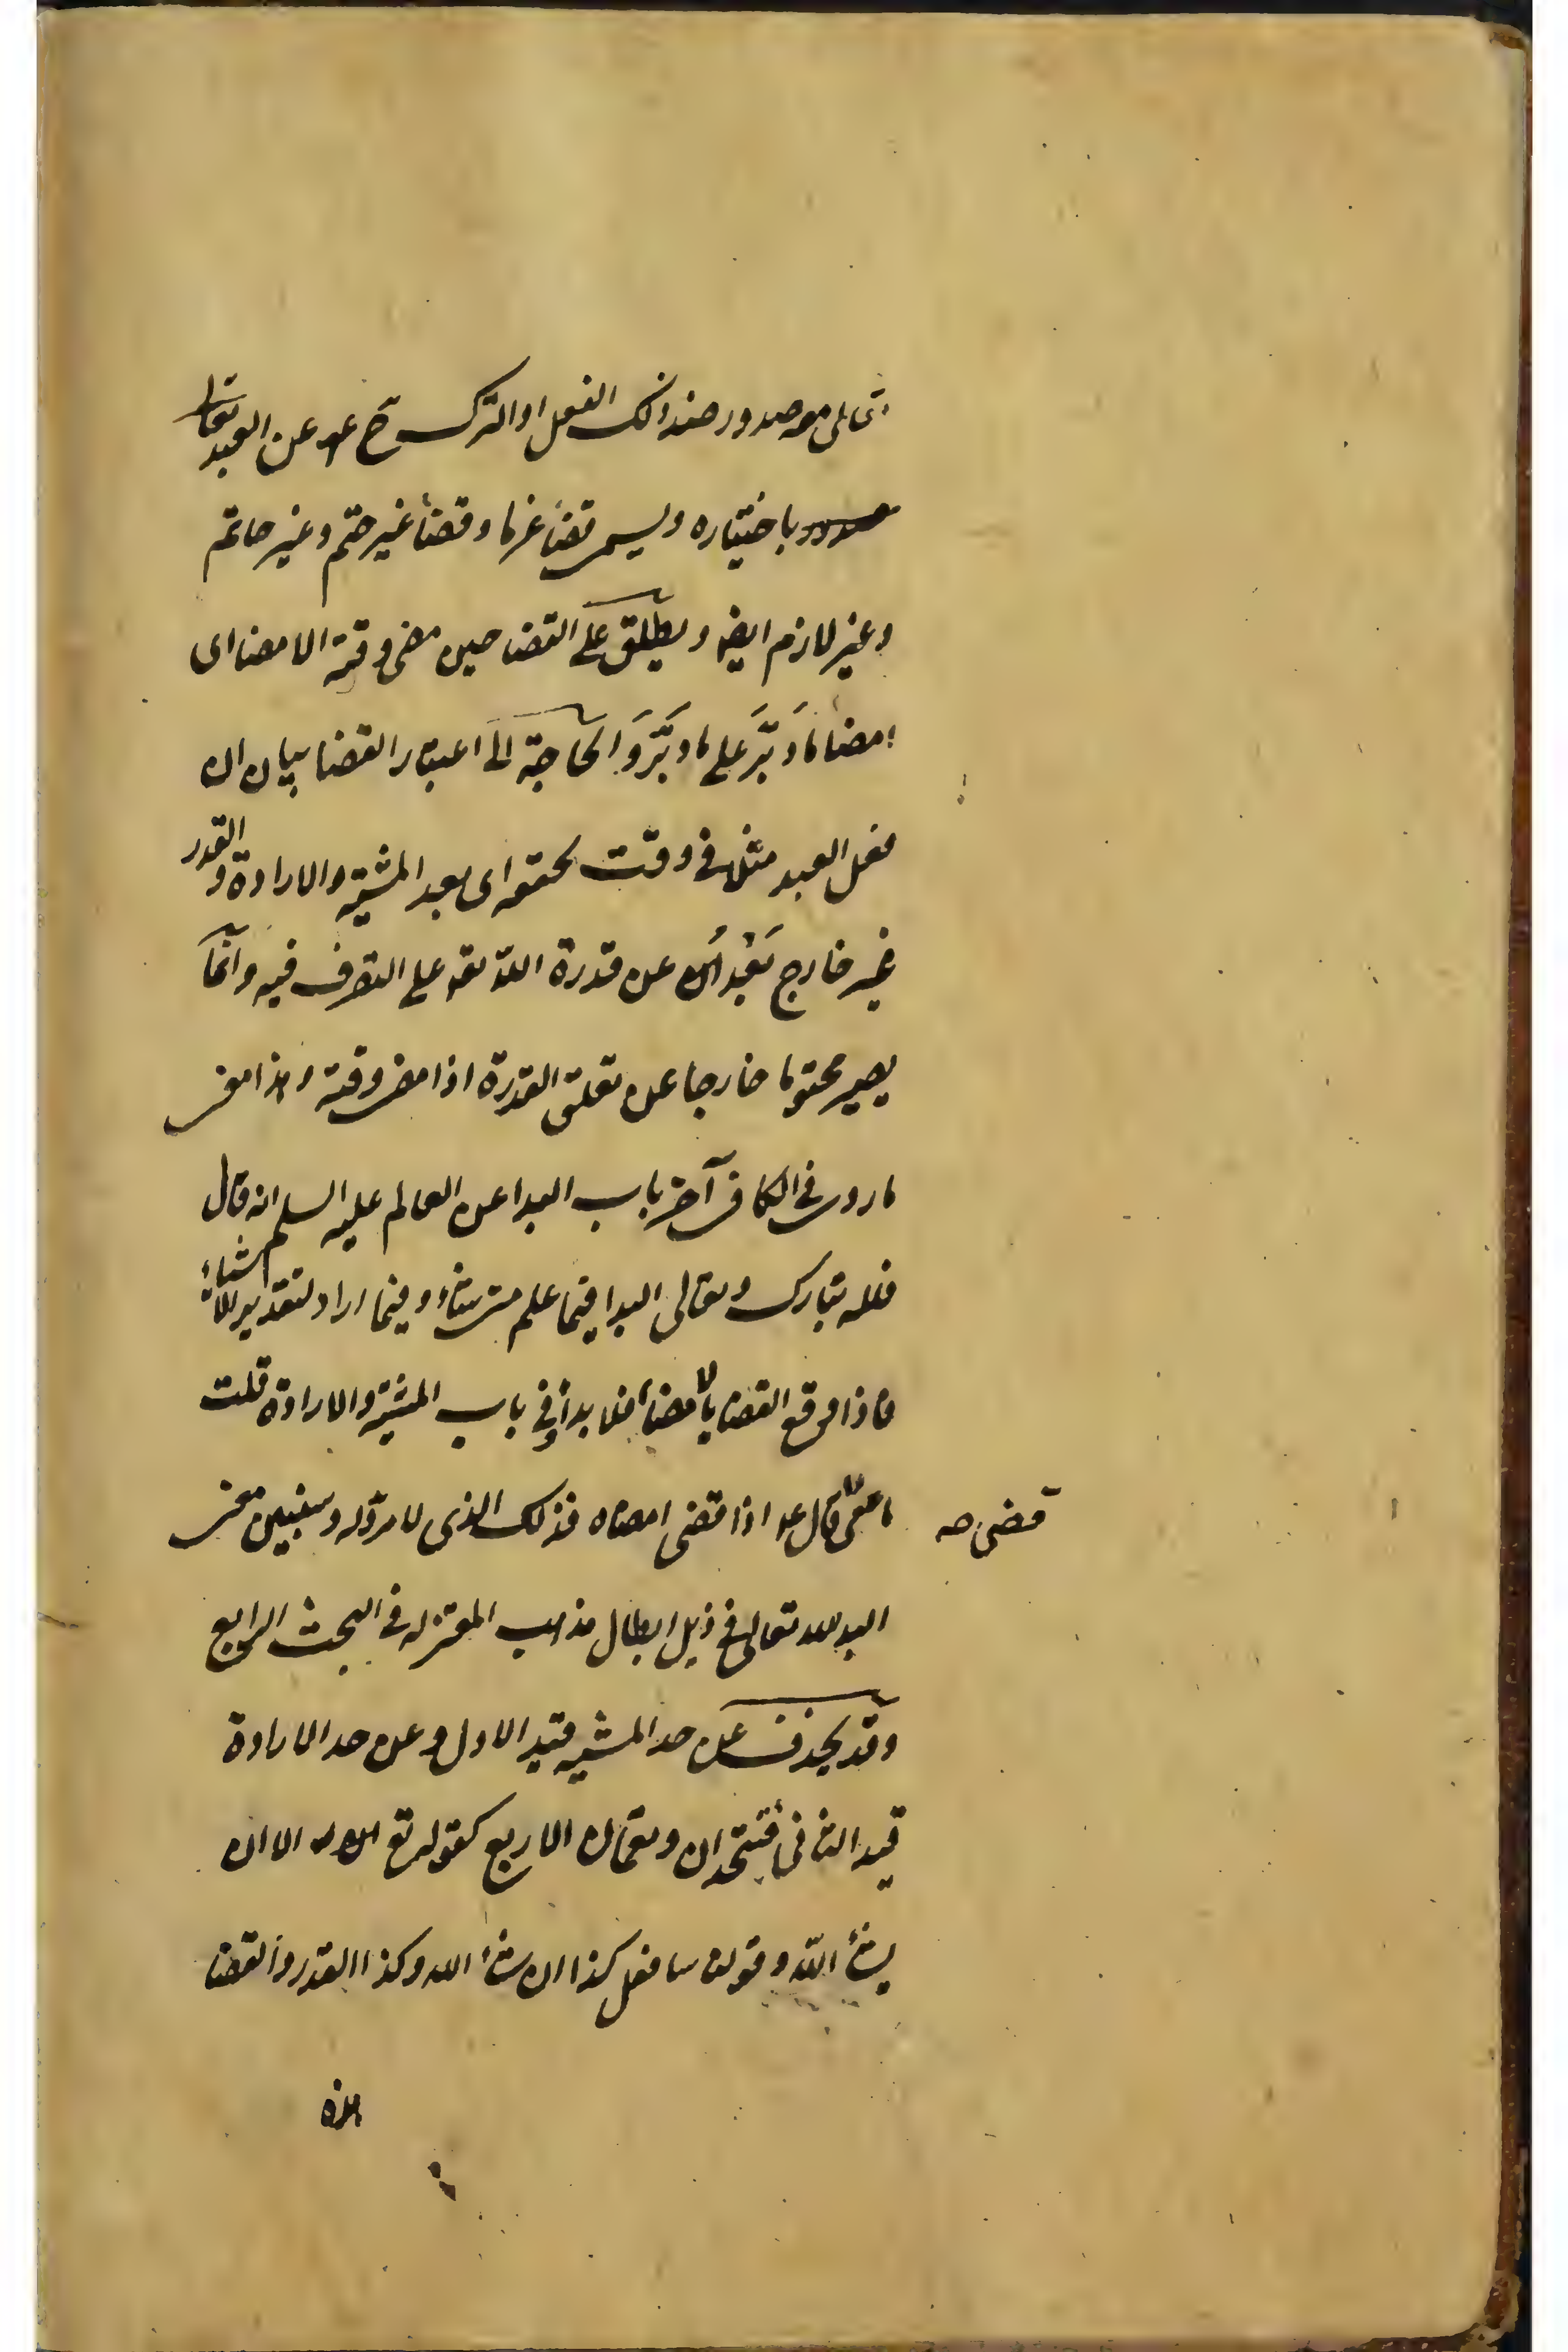 تعالى مع صدور ضد ذلك الفعل او الترك ح عن العبد
باختياره ويسمى قضاء عزما وقضاء غير حتم وغير حاتم
وغير لازم ايضا ويطلق على القضا حين مضى وقته الامضا اى
امضا ما دبّر على ما دبّر والحاجة الى اعتبار القضا بيان ان
فعل العبد مثلا فى وقت تحققه اى بعد المشية والارادة و القدر
غير خارج بَعْدُ عن قدرة الله تعه على التصرف فيه وانما
يصير محتوما خارجا عن تعلق القدرة اذا مضى وقته وهذا معنى
ما روى فى الكافى آخر باب البدا عن العالم عليه السلم انه قال
فلله تبارك وتعالى البدا فيما علم متى شاء وفيما اراد لتقدير الاشياء
فاذا وقع القضا بالامضاء فلا بدأ وفى باب المشية والارادة قلت
ما معنى قال اذا قضى امضاه فذلك الذى لا مردّ له وسنبين معنى
قضى صه
البد لله تعالى فى ذيل ابطال مذهب المعتزله فى البحث الرابع
وقد يحذف عن حد المشيه قيد الاول وعن حد الارادة
قيد الثانى فتتحدان وتعمان الاربع كقوله تع الا ان
يشاء الله وقولنا سافعل كذا ان شاء الله وكذا القدر والقضا